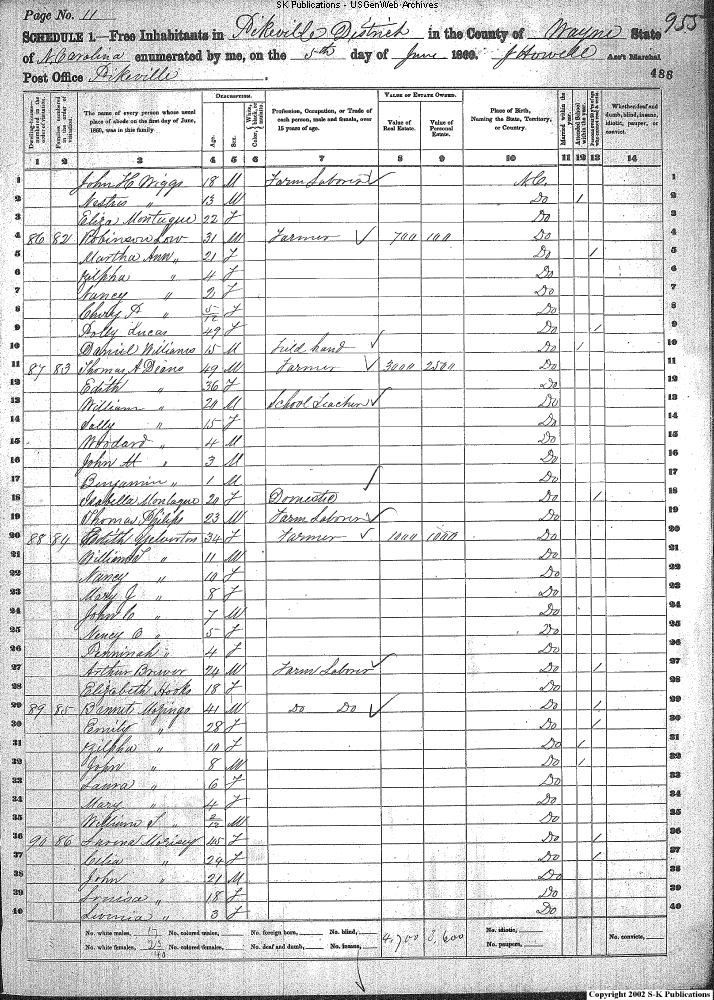 SK Publications - USGenWeb Archives
Page No. 11
955
SCHEDULE 1.—Free Inhabitants in Pikeville District in the County of Wayne State
of N. Carolina enumerated by me, on the 5th day of June 1860. J Howell Ass't Marshal
Post Office Pikeville.
486
Dwelling-houses—numbered in the order of visitation.
Families numbered in the order of visitation.
The name of every person whose usual place of abode on the first day of June, 1860, was in this family.
DESCRIPTION.
Age.
Sex.
Color, White, black, or mulatto.
Profession, Occupation, or Trade of each person, male and female, over 15 years of age.
VALUE OF ESTATE OWNED.
Value of Real Estate.
Value of Personal Estate.
Place of Birth, Naming the State, Territory, or Country.
Married within the year.
Attended School within the year.
Whether deaf and dumb, blind, insane, idiotic, pauper, or convict.
1 2 3 4 5 6 7 8 9 10 11 12 13 14
1 John H Wiggs 18 M Farm Laborer N.C. 1
2 " 13 M Do / 2
3 Eliza Montague 22 F Do 3
4 86 82 Robinson Low 31 M Farmer 700 100 Do 4
5 Martha Ann " 21 F Do / 5
6 Zilpha " 4 F Do 6
7 Nancy " 2 F Do 7
8 " 5/12 F Do 8
9 Polly Lucas 49 F Do / 9
10 Daniel Williams 15 M Field hand Do / 10
11 87 83 Thomas A Deans 49 M Farmer 3000 2500 Do 11
12 Edith " 36 F Do 12
13 William " 20 M School Teacher Do 13
14 Sally " 15 F Do 14
15 Woodard " 4 M Do 15
16 John H " 3 M Do 16
17 Benjamin " 1 M Do 17
18 Isabella Montague 20 F Domestic Do / 18
19 Thomas Philips 23 M Farm Laborer Do 19
20 88 84 Edith Yelverton 34 F Farmer 1000 1000 Do 20
21 William " 11 M Do 21
22 Nancy " 10 F Do 22
23 Mary J " 8 F Do 23
24 John C " 7 M Do 24
25 " 5 F Do 25
26 Penninah " 4 F Do 26
27 Arthur Brewer 24 M Farm Laborer Do / 27
28 Elizabeth Hooks 18 F Do 28
29 89 85 Bennet Mozingo 41 M Do Do Do / 29
30 Emily " 28 F Do / 30
31 Zilpha " 10 F Do / 31
32 John " 8 M Do / 32
33 Laura " 6 F Do 33
34 Mary " 4 F Do 34
35 William " M Do 35
36 90 86 45 F Do / 36
37 Celia " 24 F Do / 37
38 John " 21 M Do 38
39 Louisa " 18 F Do 39
40 " 3 F Do 40
No. white males, 17 No. colored males, No. foreign born, No. blind, 4,700 3,600 No. idiotic, No. convicts,
No. white females, 23 No. colored females, No. deaf and dumb, No. insane, No. paupers,
40
Copyright 2002 S-K Publications